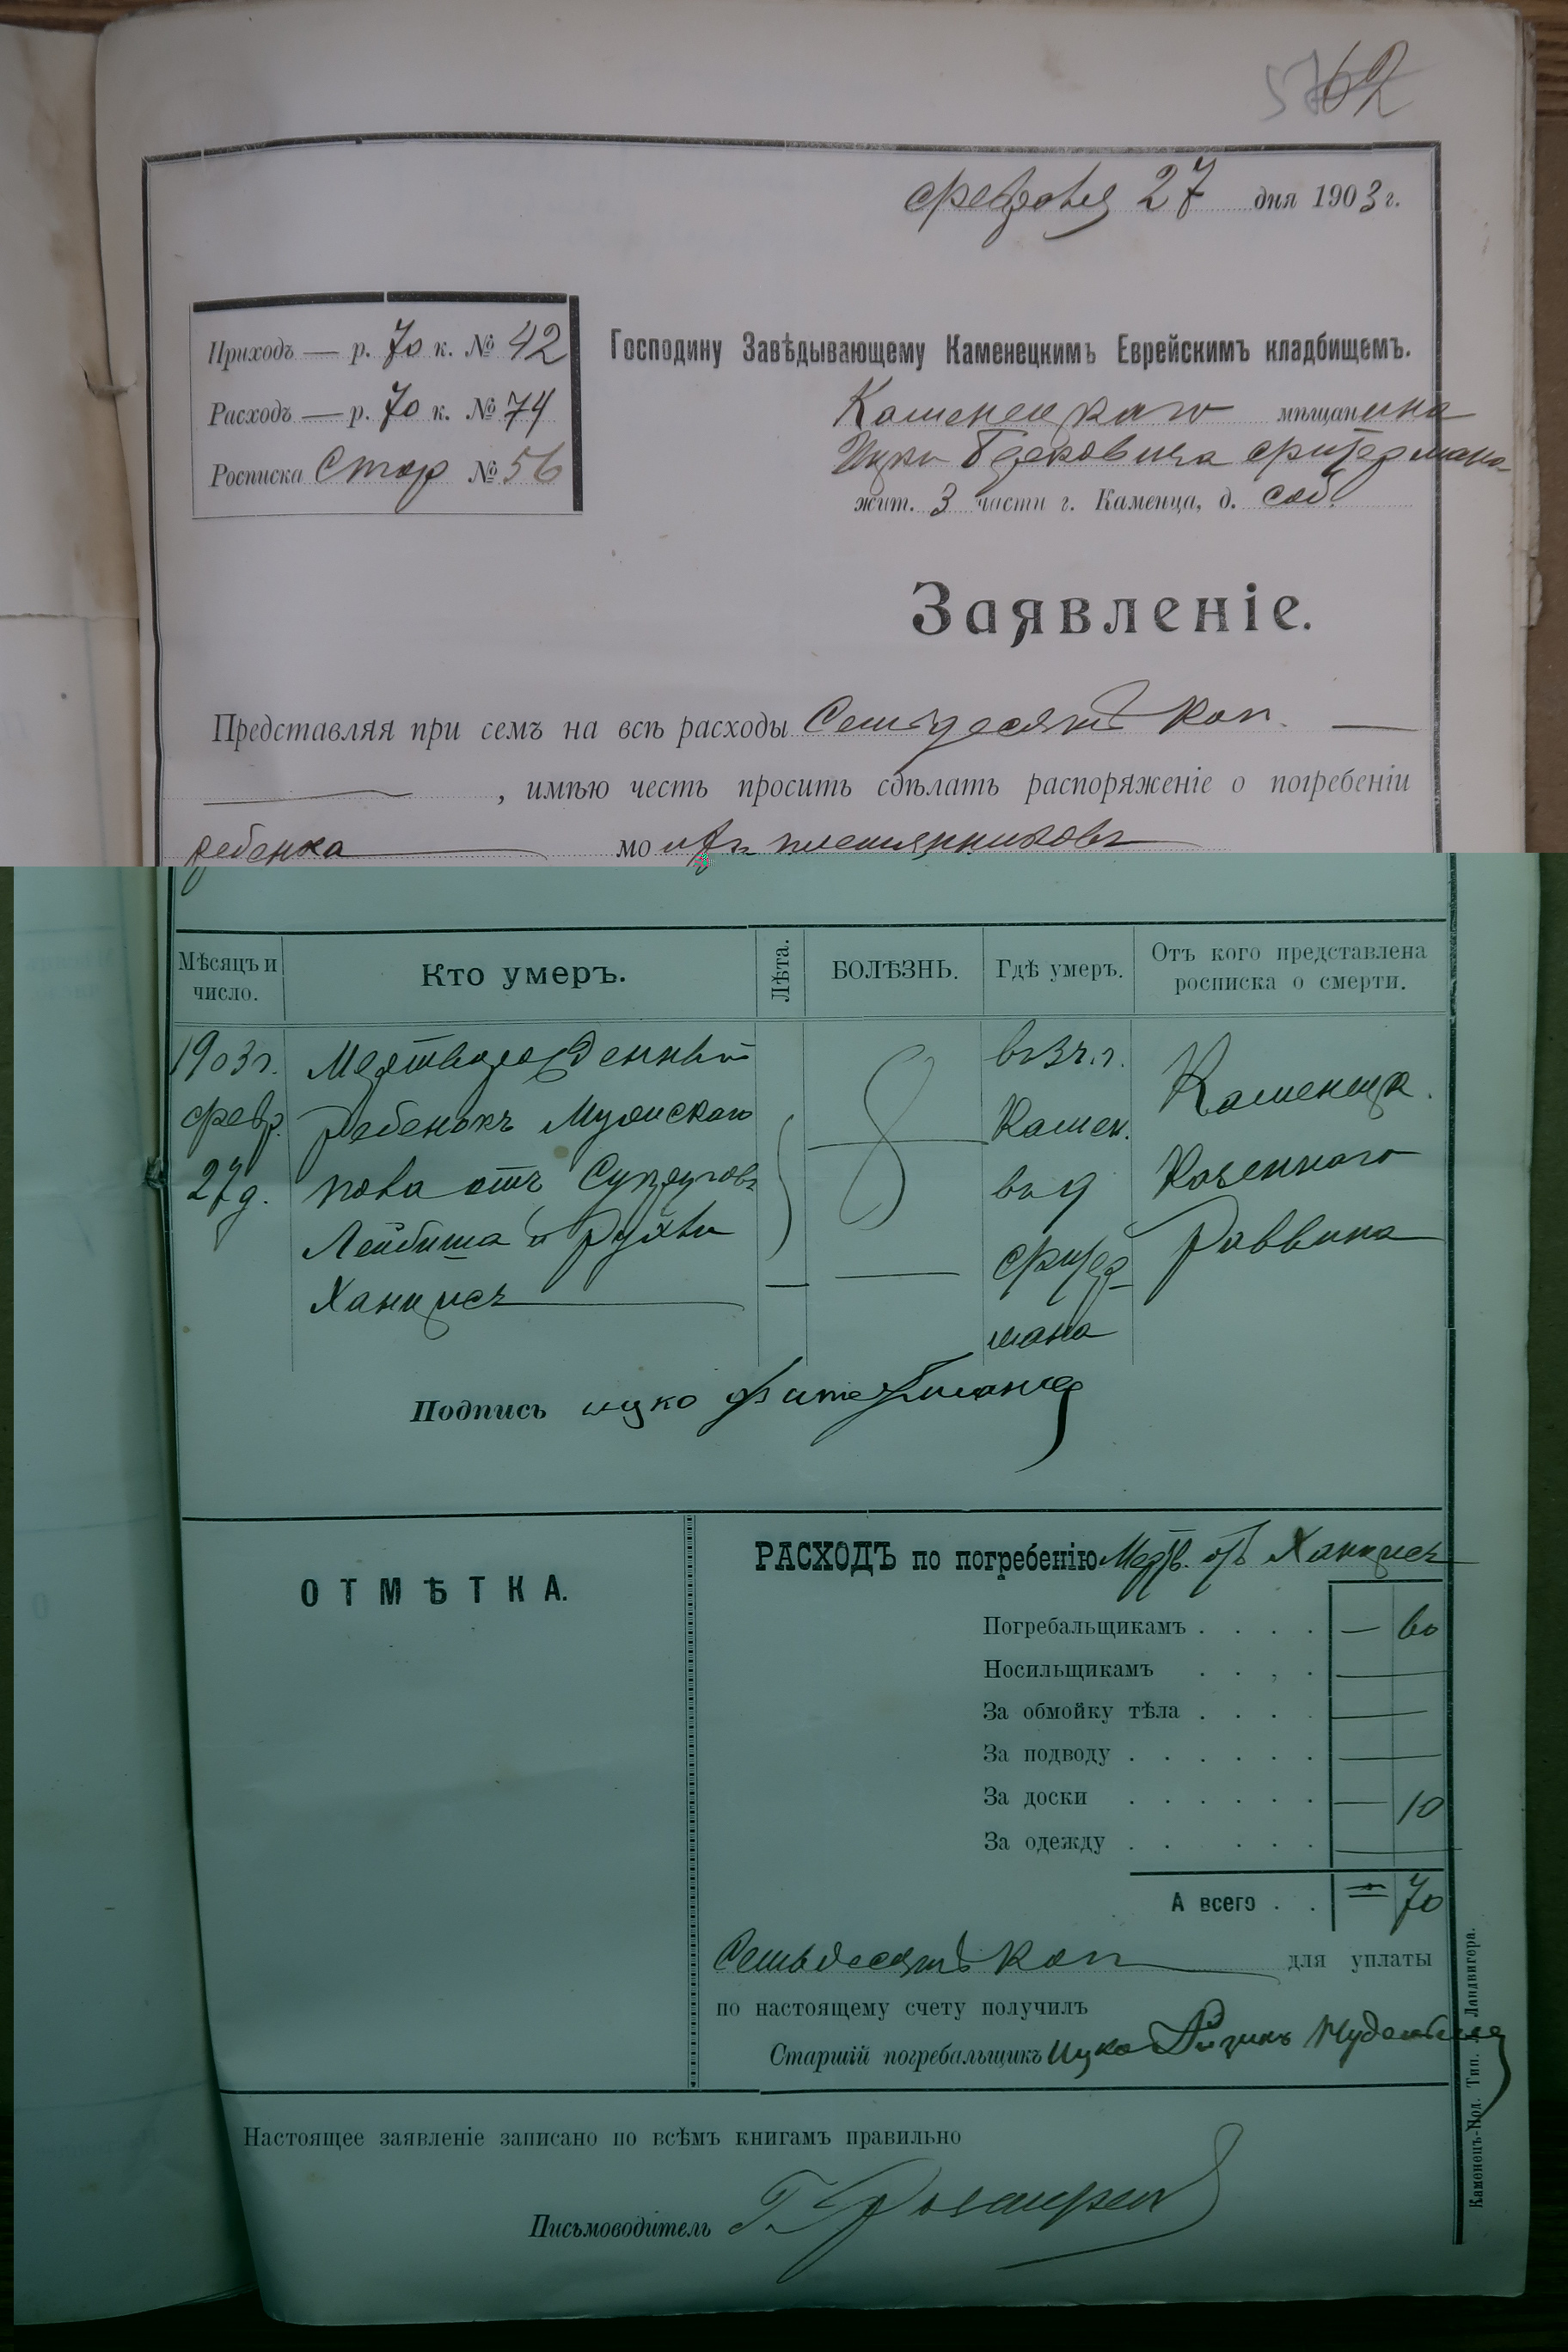 62
февраля 27 дня 1903 г.
Приходъ — р. 70 к. № 42
Расходъ — р. 70 к. № 74
Росписка Стор № 56
Господину Завѣдывающему Каменецкимъ Еврейскимъ кладбищемъ.
Каменецкаго мѣщанина
Ицки Фитермана
жит. 3 части г. Каменца, д. соб.
Заявленіе.
Представляя при семъ на всѣ расходы Семьдесятъ Коп. —
, имѣю честь просить сдѣлать распоряженіе о погребеніи
ребенка моихъ племянниковъ
Мѣсяцъ и число.
Кто умеръ.
Лѣта.
БОЛѢЗНЬ.
Гдѣ умеръ.
Отъ кого представлена росписка о смерти.
1903 г.
февр.
27 д.
Мертворожденный
ребенокъ Мужскаго
пола отъ Супруговъ
Лейбиша и Рухли
Ханцисъ
въ 3 ч. г.
Камен.
въ д
Фитер-
мана
Каменецк.
Казеннаго
Раввина
Подпись ицко Фитерманъ
ОТМѢТКА.
РАСХОДЪ по погребенію Мертв. отъ Ханцисъ
Погребальщикамъ . . . . — 60
Носильщикамъ . . . . —
За обмойку тѣла . . . . —
За подводу . . . . . . —
За доски . . . . . . — 10
За одежду . . . . . . —
А всего . . = 70
Семьдесятъ Коп для уплаты
по настоящему счету получилъ
Старшій погребальщикъ Ицко
Настоящее заявленіе записано по всѣмъ книгамъ правильно
Письмоводитель
Каменецъ-Под. Тип. Л. Ландвигера.